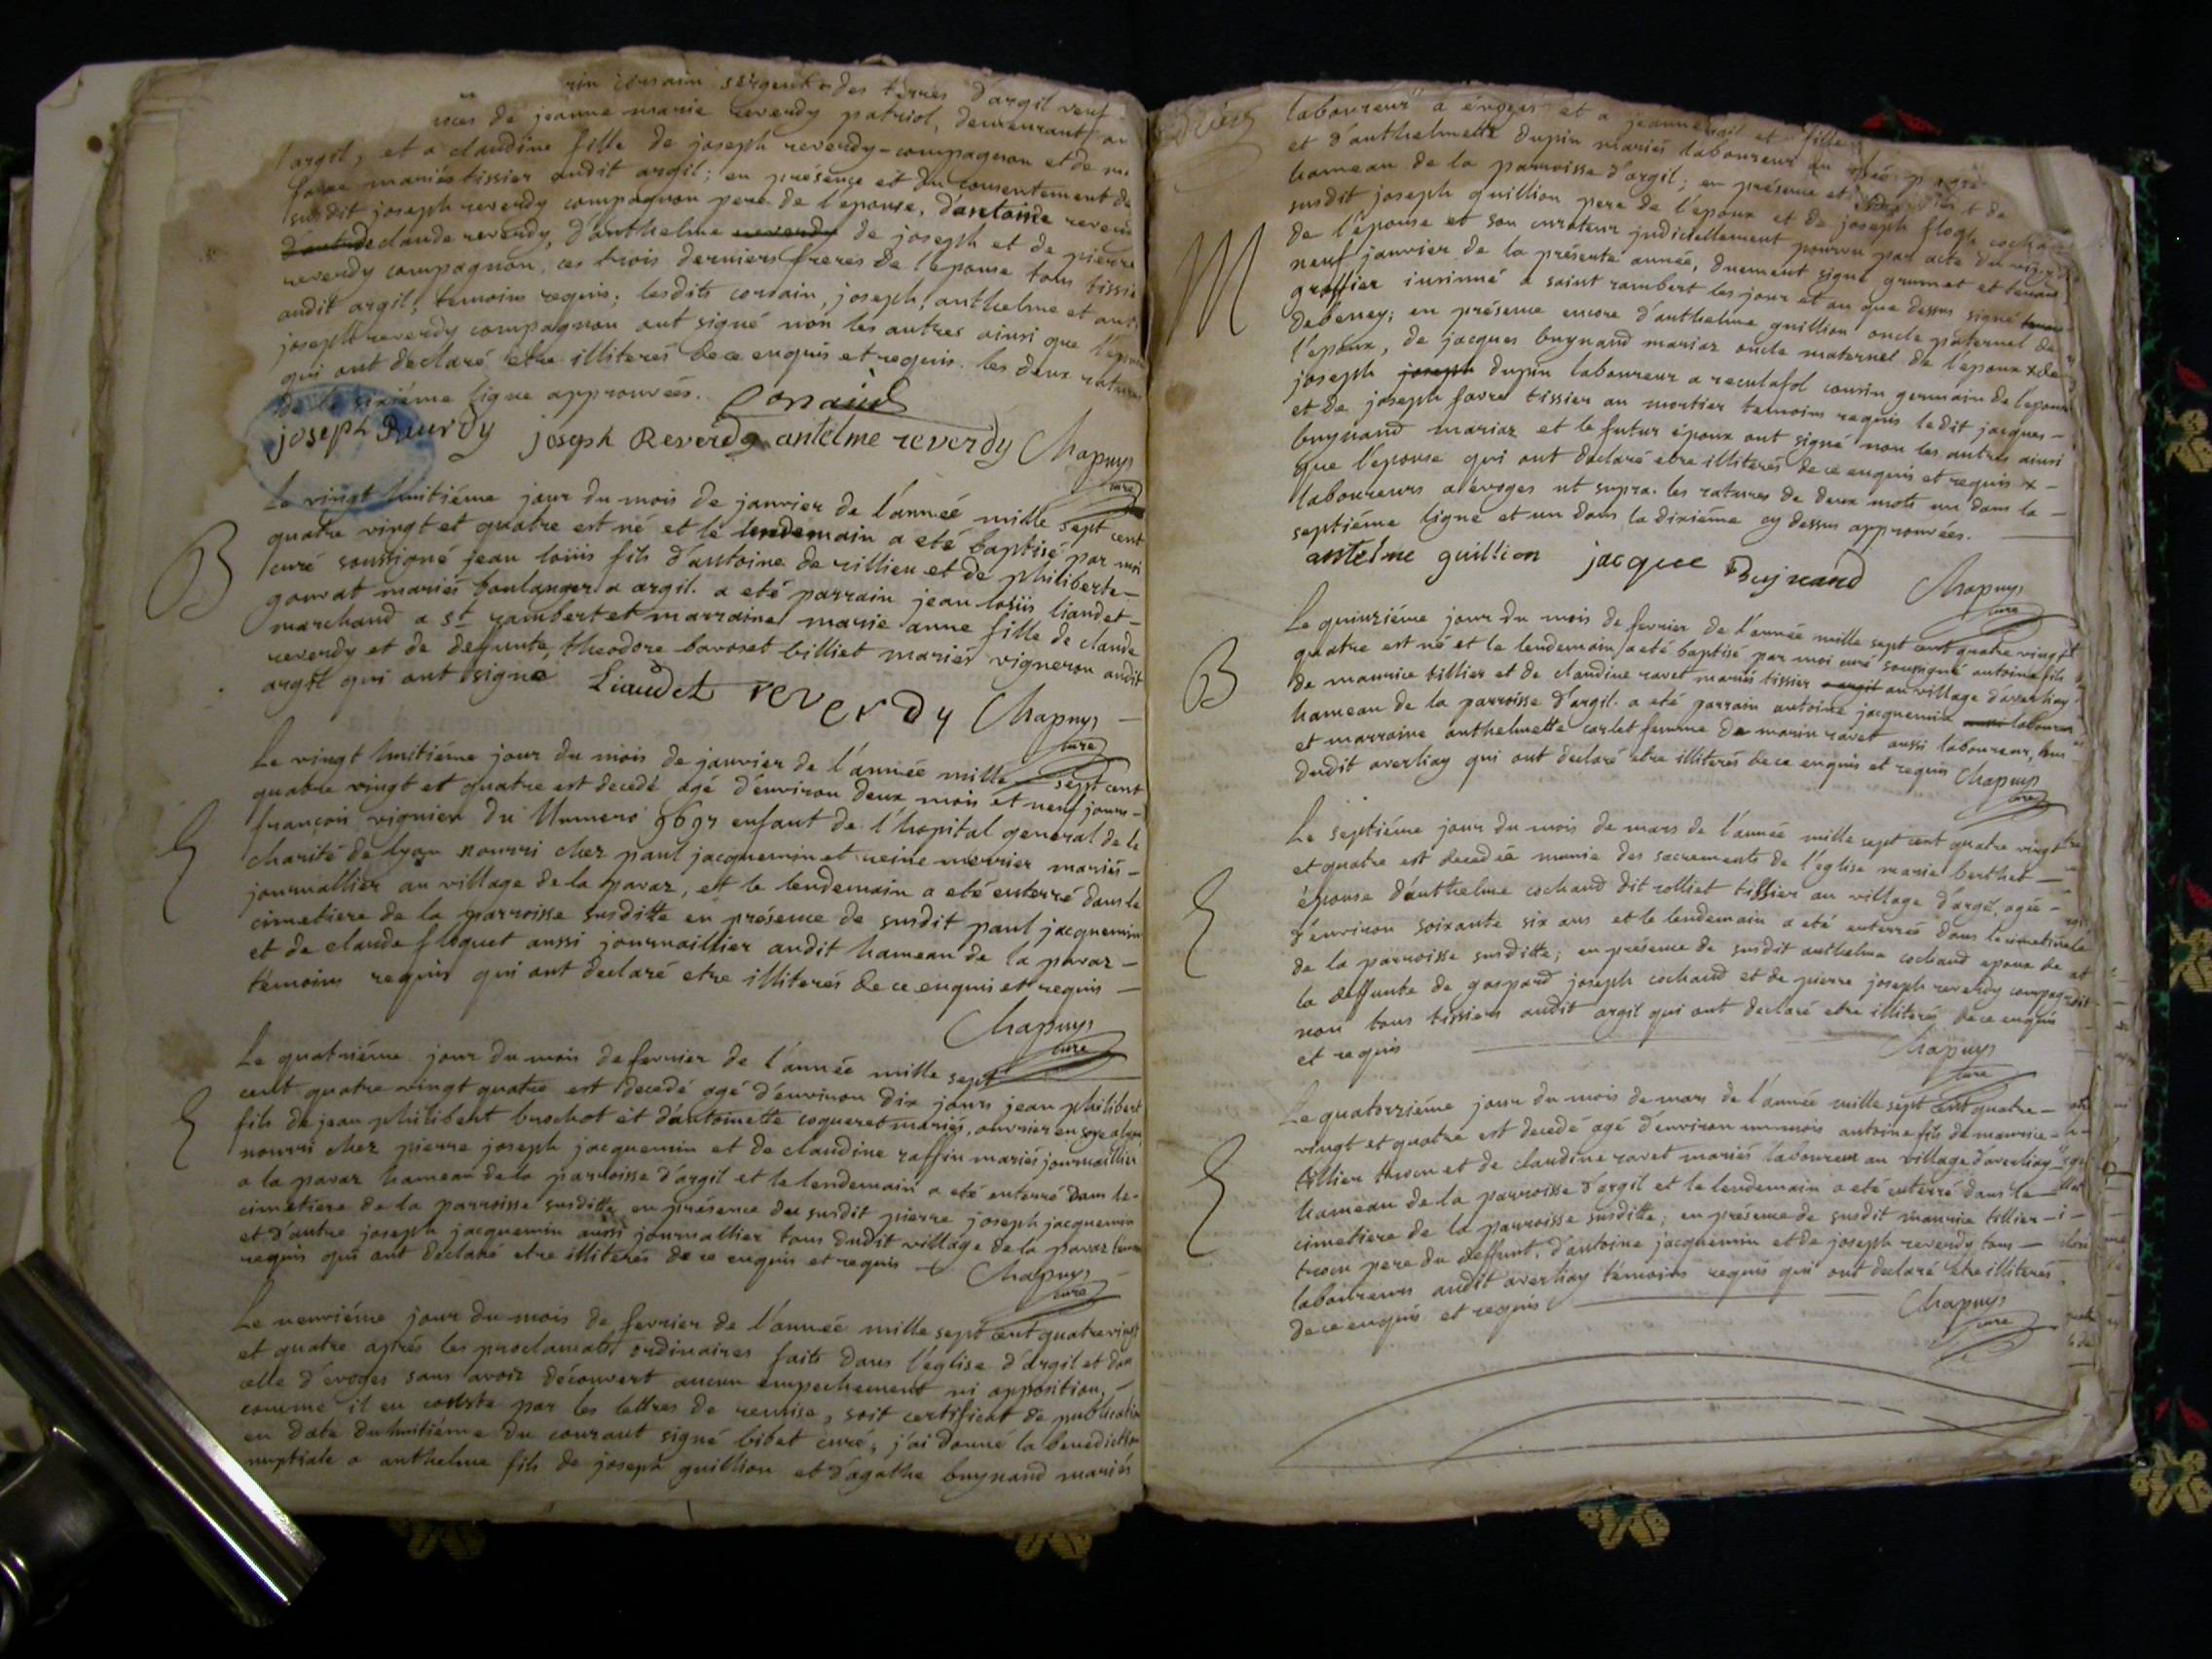 rin corsain sergent des terres d'argil veuf
de jeanne marie reverdy patriol, demeurant au
argil, et a claudine fille de joseph reverdy-compagnon et de
favre mariés tissier audit argil; en présence et du consentement de
susdit joseph reverdy compagnon pere de l'epouse, d'antoine
de claude reverdy, d'anthelme reverdy de joseph et de pierre
reverdy compagnon, ces trois derniers freres de l'epouse tous
audit argil, temoins requis; lesdits corsain, joseph, anthelme et
joseph reverdy compagnon ont signé non les autres ainsi que
qui ont declaré etre illiterés de ce enquis et requis. les deux
de la sixiéme ligne approuvées. Corsain
joseph Reverdy joseph Reverdy antelme reverdy Chapuys
curé
Le vingt huitiéme jour du mois de janvier de l'année mille sept cent
quatre vingt et quatre est né et le lendemain a eté baptisé par moi
B curé soussigné jean loüis fils d'antoine de rillieu et de philiberte
gouvat mariés boulanger a argil. a eté parrain jean loüis liaudet
marchand a st rambert et marraine marie anne fille de claude
reverdy et de defunte theodore bavoset billiet mariés vigneron audit
argil qui ont signé Liaudet reverdy Chapuys
curé
Le vingt huitiéme jour du mois de janvier de l'année mille sept cent
quatre vingt et quatre est decedé agé d'environ deux mois et neuf jours
françois vignier du Numero 9697 enfant de l'hopital general de la
charité de lyon nourri chez paul jacquemin et reine mervier mariés
journallier au village de la pavaz, et le lendemain a eté enterré dans le
cimetiere de la parroisse susditte en présence de susdit paul jacquemin
et de claude floquet aussi journaillier audit hameau de la pavaz
témoins requis qui ont declaré etre illiterés de ce enquis et requis
Chapuys
curé
Le quatriéme jour du mois de fevrier de l'année mille sept
cent quatre vingt quatre est decedé agé d'environ dix jours jean philibert
fils de jean philibert brochot et d'antoinette coqueret mariés, ouvrier en soye a lyon
nourri chez pierre joseph jacquemin et de claudine raffin mariés journaillier
a la pavaz hameau de la parroisse d'argil et le lendemain a eté enterré dans le
cimetiere de la parroisse susditte en présence du susdit pierre joseph jacquemin
et d'autre joseph jacquemin aussi journallier tous dudit village de la pavaz
requis qui ont declaré etre illiterés de ce enquis et requis
Chapuys
curé
Le neuviéme jour du mois de fevrier de l'année mille sept cent quatre vingt
et quatre aprés les proclamats ordinaires faits dans l'église d'argil et dans
celle d'évoges sans avoir découvert aucun empechement ni opposition,
comme il en conste par les lettres de remise, soit certificat de publication
en date du huitiéme du courant signé bibet curé, j'ai donné la benediction
nuptiale a anthelme fils de joseph guillion et d'agathe buynand mariés
laboureur a évoges et a jeanne fille
et d'anthelmette dupin mariés laboureur au
hameau de la parroisse d'argil; en présence et de
susdit joseph guillion pere de l'epoux et de joseph
de l'epouse et son curateur judiciellement pourvu par acte du vingt
M neuf janvier de la présente année, duement signé grumet et
greffier insinué a saint rambert les jour et an que dessus signé
debeney; en présence encore d'anthelme guillion oncle paternel de
l'epoux, de jacques buynand mariaz oncle maternel de l'epoux x de
joseph joseph dupin laboureur a reculafol cousin germain de l'epouse
et de joseph favre tissier au mortier temoins requis ledit jacques
buynand mariaz et le futur époux ont signé non les autres ainsi
que l'epouse qui ont declaré etre illiterés de ce enquis et requis x
laboureurs a évoges ut supra. les ratures de deux mots un dans la
septiéme ligne et un dans la dixiéme cy dessus approuvées.
antelme guillion jacque Buynand Chapuys
curé
Le quinziéme jour du mois de fevrier de l'année mille sept cent quatre vingt
quatre est né et le lendemain a eté baptisé par moi curé soussigné antoine fils
B de maurice tillier et de claudine ravet mariés tissier a argil au village d'averliay
hameau de la parroisse d'argil. a eté parrain antoine jacquemin aussi laboureur
et marraine anthelmette carlet femme de marin ravet aussi laboureur, tous
dudit averliay qui ont declaré etre illiterés de ce enquis et requis Chapuys
curé
Le septiéme jour du mois de mars de l'année mille sept cent quatre vingt
et quatre est decedée munie des sacrements de l'église marie berthet
épouse d'anthelme cochaud dit rolliet tissier au village d'argil, agée
d'environ soixante six ans et le lendemain a eté enterrée dans le cimetiere
de la parroisse susditte; en présence de susdit anthelme cochaud epoux de
la deffunte de gaspard joseph cochaud et de pierre joseph reverdy compag
non tous tissiers audit argil qui ont declaré etre illiterés de ce enquis
et requis
Chapuys
curé
Le quatorziéme jour du mois de mars de l'année mille sept cent quatre
vingt et quatre est decedé agé d'environ un mois antoine fils de maurice
tillier et de claudine ravet mariés laboureur au village d'averliay
hameau de la parroisse d'argil et le lendemain a eté enterré dans le
cimetiere de la parroisse susditte; en présence de susdit maurice tillier
pere du deffunt, d'antoine jacquemin et de joseph reverdy tous
laboureurs audit averliay témoins requis qui ont declaré etre illiterés
de ce enquis et requis
Chapuys
curé